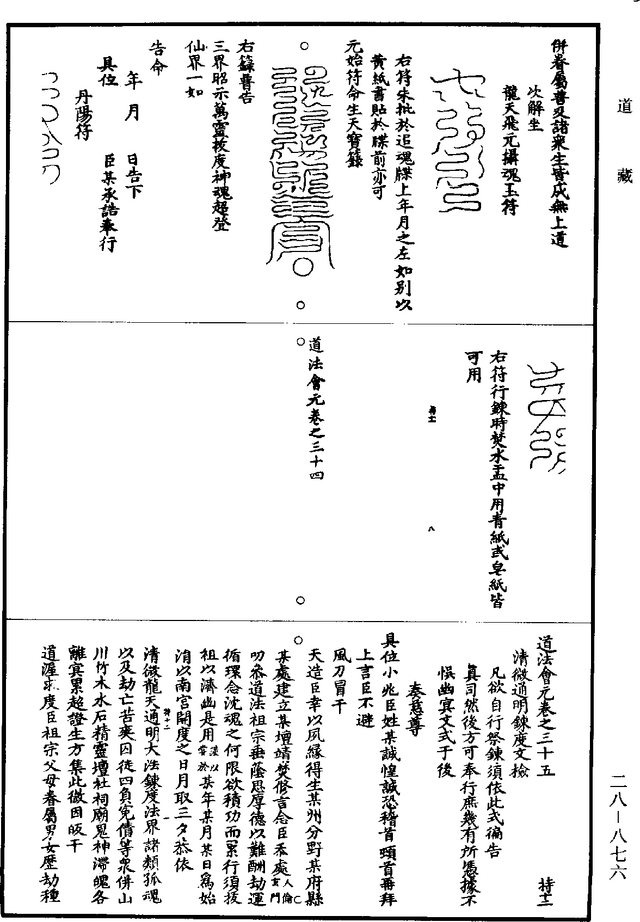 道藏
併眷屬普及諸眾生皆成無上道
次解坐
龍天飛元攝魂玉符
右符朱批於追魂牒上年月之左如别以
黄紙書貼於牒前亦可
元始符命生天寶籙
右籙普告
三界昭示萬靈拔度神魂超登
仙界一如
告命
年 月 日告下
具位 臣某承誥奉行
丹陽符
右符行鍊時焚水盂中用青紙或皂紙皆
可用
道法會元卷之三十四
道法會元卷之三十五 持十二
清微通明鍊度文檢
凡欲自行祭鍊須依此式徧告
真司然後方可奉行庶幾有所憑據不
悞幽冥文式于後
奏慈尊
具位小兆臣姓某誠惶誠恐稽首頓首再拜
上言臣不避
風刀冒干
天造臣幸以夙縁得生某州分野某府縣
某處建立某壇靖焚修言念臣忝處人倫
叨參道法祖宗垂蔭恩厚德以難酬劫運
循環念沈魂之何限欲積功而累行須拔
祖以濟幽是用某年某月某日為始
涓以南宫開度之日月取三夕恭依
清微龍天通明大法鍊度法界諸類孤魂
以及劫亡苦爽囚徒四負寃債等衆併山
川竹木水石精靈壇社祠廟鬼神滯魄各
離冥累超證生方集此微因皈干
道渥求度臣祖宗父母眷屬男女歷劫種
二八—八七六